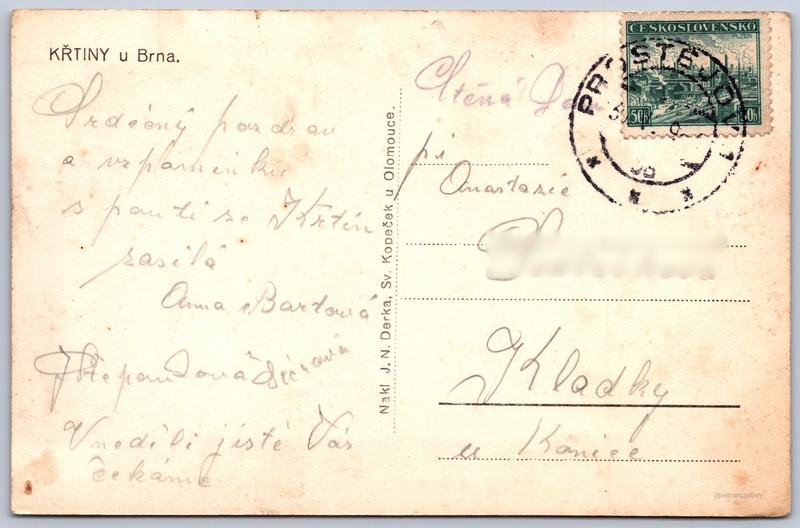 KŘTINY u Brna.
Srdečný pozdrav
a vzpomínku
s pouti ze Křtin
zasílá
Anna Bartová
Štěpan
V neděli jistě Vás
čekáme
Nakl J. N. Derka, Sv. Kopeček u Olomouce.
ČESKOSLOVENSKO
PLZEŇ
50h 50h
PROSTĚJOV 1
Ctěná
Anastazie
Kladky
u Konice